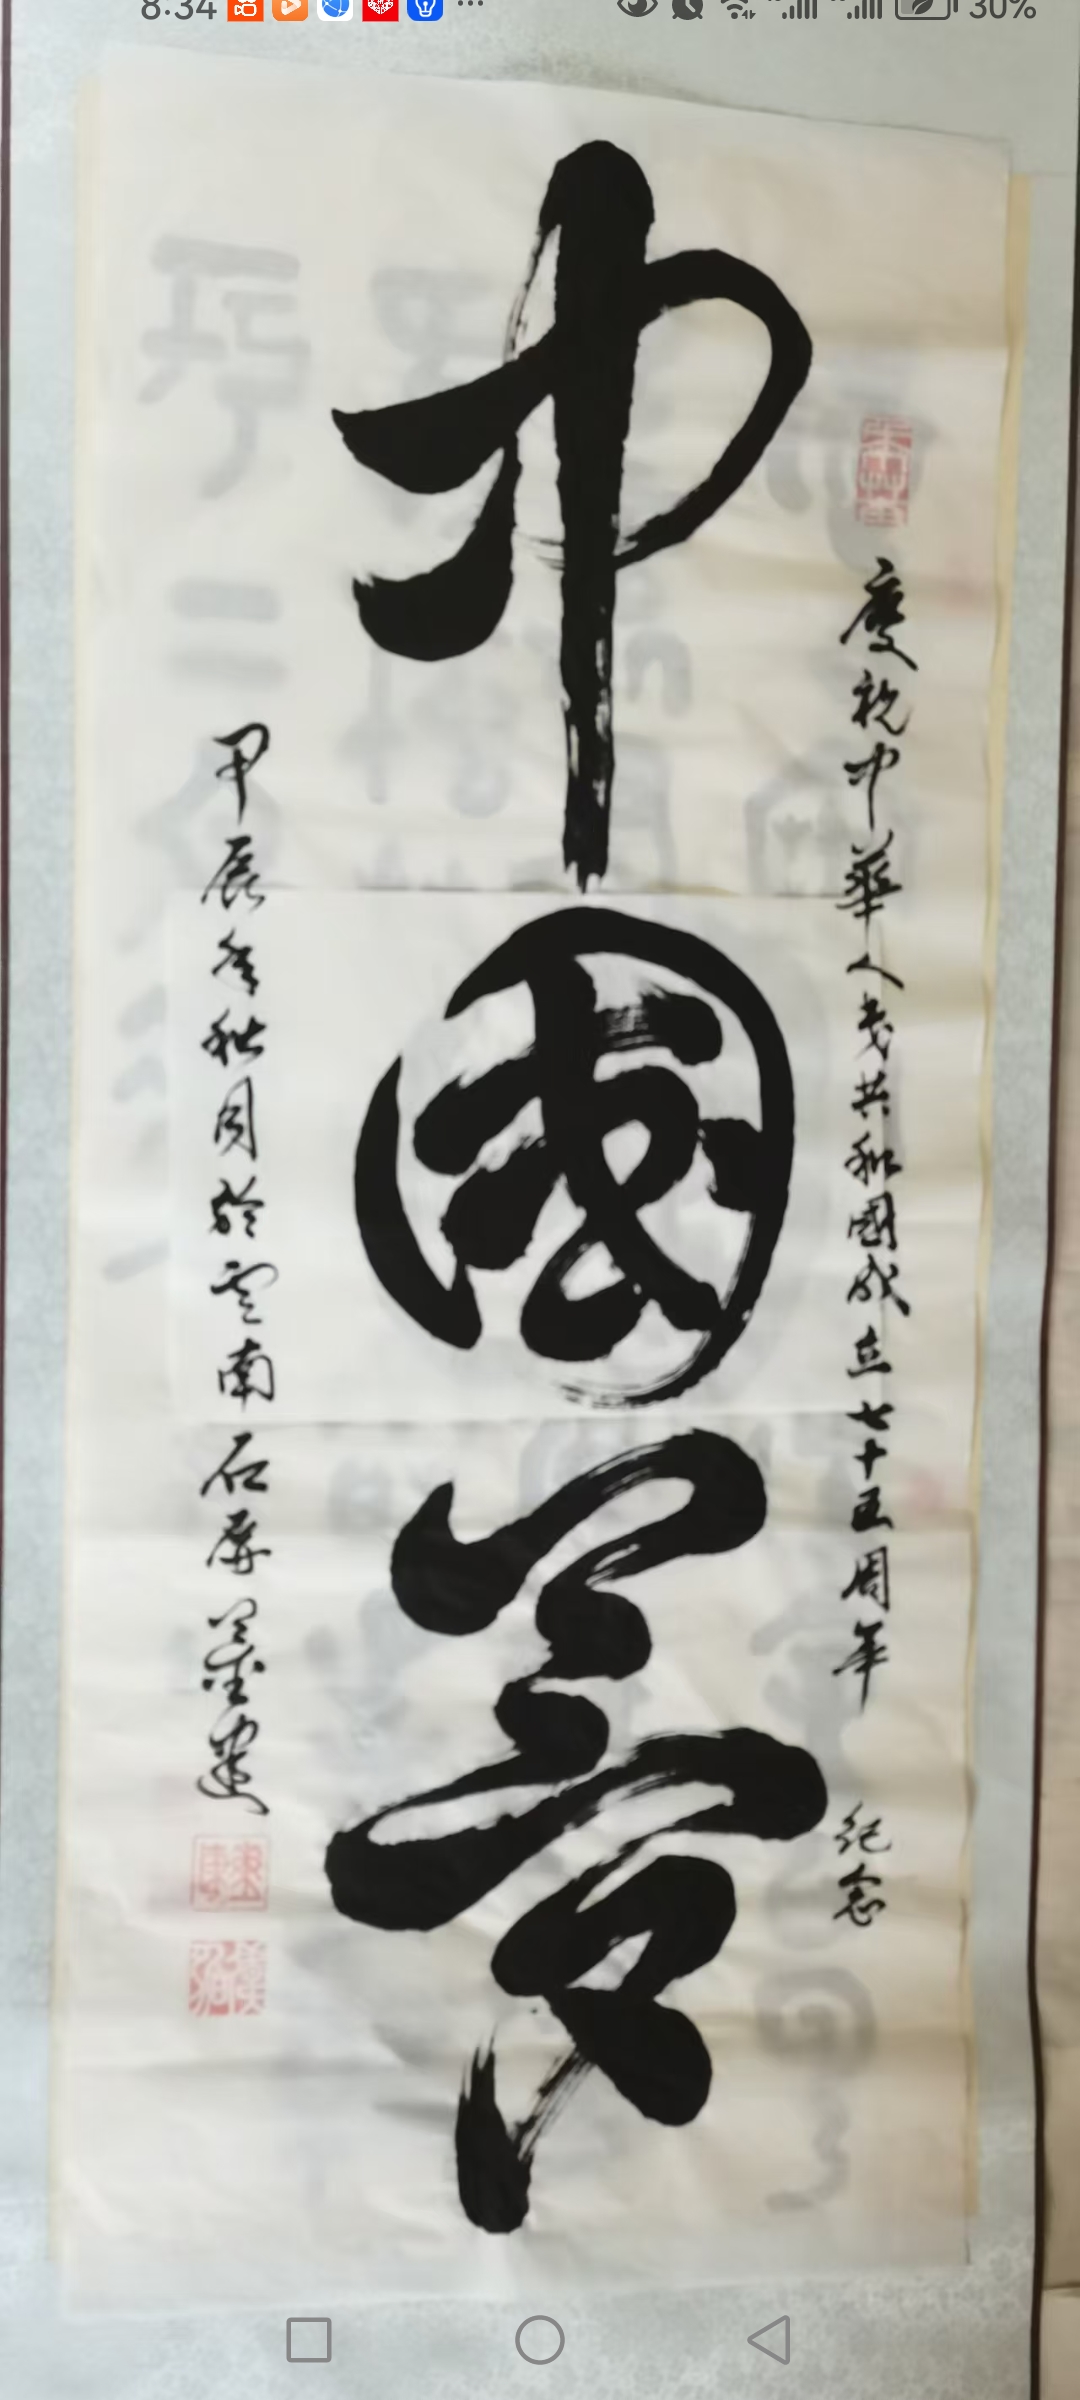 8:34
30%
慶祝中華人民共和國成立七十五周年
纪念
中國夢
甲辰年秋月於雲南石屏